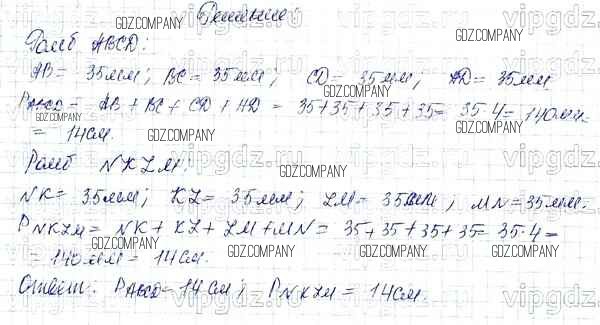 Решение:
Ромб ABCD:
AB = 35мм; BC = 35мм; CD = 35мм; AD = 35мм
PABCD = AB + BC + CD + AD = 35+35+35+35 = 35·4 = 140мм =
= 14см.
Ромб NKLM:
NK = 35мм; KL = 35мм; LM = 35мм; MN = 35мм.
PNKLM = NK + KL + LM + MN = 35+35+35+35 = 35·4 =
= 140мм = 14см.
Ответ: PABCD = 14см; PNKLM = 14см.